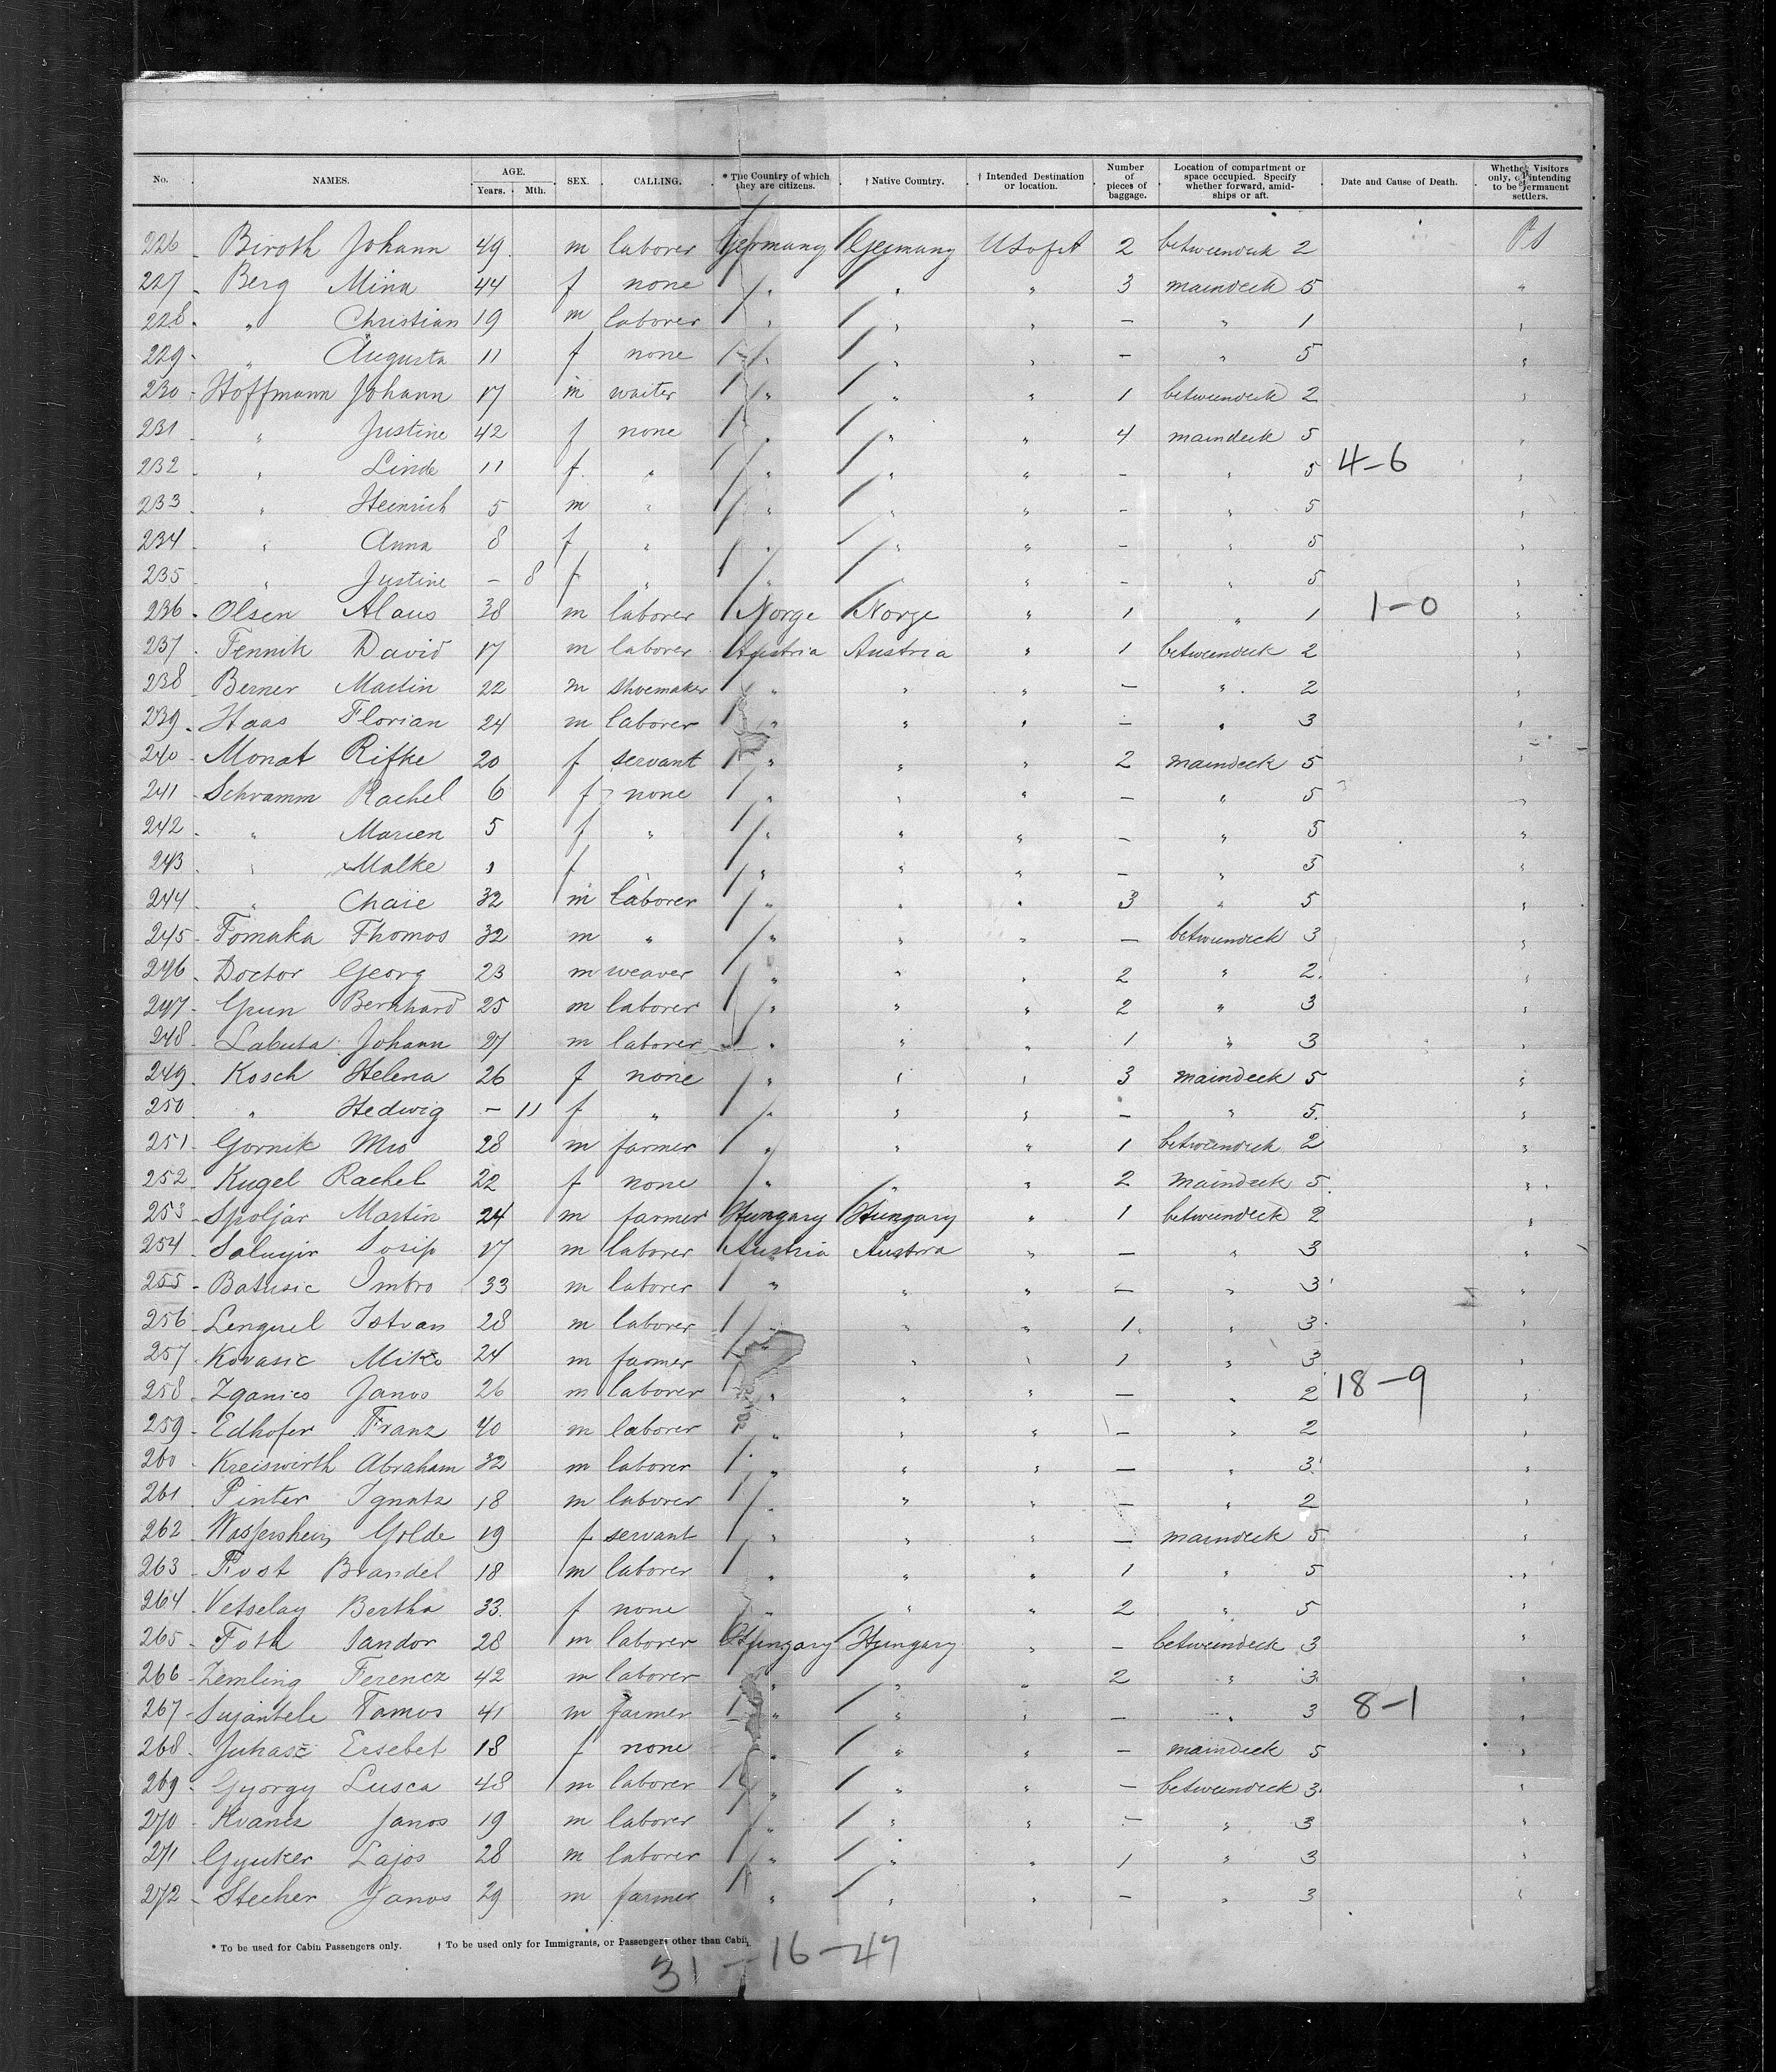 No. NAMES. AGE. Years. Mth. SEX. CALLING. * The Country of which they are citizens. † Native Country. † Intended Destination or location. Number of pieces of baggage. Location of compartment or space occupied. Specify whether forward, amidships or aft. Date and Cause of Death. Whether Visitors only, or intending to be permanent settlers.
226 Biroth Johann 49 m laborer Germany Germany U S of A 2 betweendeck 2 PS
227 Berg Mina 44 f none " " " 3 maindeck 5 "
228 " Christian 19 m laborer " " " — " 1 "
229 " Augusta 11 f none " " " — " 5 "
230 Hoffmann Johann 17 m waiter " " " 1 betweendeck 2 "
231 " Justine 42 f none " " " 4 maindeck 5 "
232 " Linde 11 f " " " " — " 5 4-6 "
233 " Heinrich 5 m " " " " — " 5 "
234 " Anna 8 f " " " " — " 5 "
235 " Justine — 8 f " " " " — " 5 "
236 Olsen Alaus 38 m laborer Norge Norge " 1 " 1 1-0 "
237 Fennik David 17 m laborer Austria Austria " 1 betweendeck 2 "
238 Berner Martin 22 m shoemaker " " " — " 2 "
239 Haas Florian 24 m laborer " " " — " 3 "
240 Monat Rifke 20 f servant " " " 2 maindeck 5 "
241 Schramm Rachel 6 f none " " " — " 5 "
242 " Marien 5 f " " " " — " 5 "
243 " Malke f " " " " — " 5 "
244 " Chaie 32 m laborer " " " 3 " 5 "
245 Tomaka Thomas 32 m " " " " — betweendeck 3 "
246 Doctor Georg 23 m weaver " " " 2 " 2 "
247 Grun Bernhard 25 m laborer " " " 2 " 3 "
248 Labuta Johann 27 m laborer " " " 1 " 3 "
249 Kosch Helena 26 f none " " " 3 maindeck 5 "
250 " Hedwig — 11 f " " " " — " 5 "
251 Gornik Mio 28 m farmer " " " 1 betweendeck 2 "
252 Kugel Rachel 22 f none " " " 2 maindeck 5 "
253 Spoljar Martin 24 m farmer Hungary Hungary " 1 betweendeck 2 "
254 Josip 17 m laborer Austria Austria " — " 3 "
255 Batusic Imbro 33 m laborer " " " — " 3 "
256 Lenguel Istvan 28 m laborer " " " 1 " 3 "
257 Kovasic Miko 24 m farmer " " " 1 " 3 "
258 Zganics Janos 26 m laborer " " " — " 2 18-9 "
259 Edhofer Franz 40 m laborer " " " — " 2 "
260 Kreiswirth Abraham 32 m laborer " " " — " 3 "
261 Pinter Ignatz 18 m laborer " " " — " 2 "
262 Golde 19 f servant " " " — maindeck 5 "
263 Brandel 18 m laborer " " " 1 " 5 "
264 Vetselay Bertha 33 f none " " " 2 " 5 "
265 Toth Sandor 28 m laborer Hungary Hungary " — betweendeck 3 "
266 Zemling Ferencz 42 m laborer " " " 2 " 3 "
267 Tamos 41 m farmer " " " — " 3 8-1 "
268 Juhasz Ersebet 18 f none " " " — maindeck 5 "
269 Gyorgy Lusca 48 m laborer " " " — betweendeck 3 "
270 Kvancz Janos 19 m laborer " " " — " 3 "
271 Gyuker Lajos 28 m laborer " " " 1 " 3 "
272 Stecher Janos 29 m farmer " " " — " 3 "
* To be used for Cabin Passengers only. † To be used only for Immigrants, or Passengers other than Cabin.
31-16-47